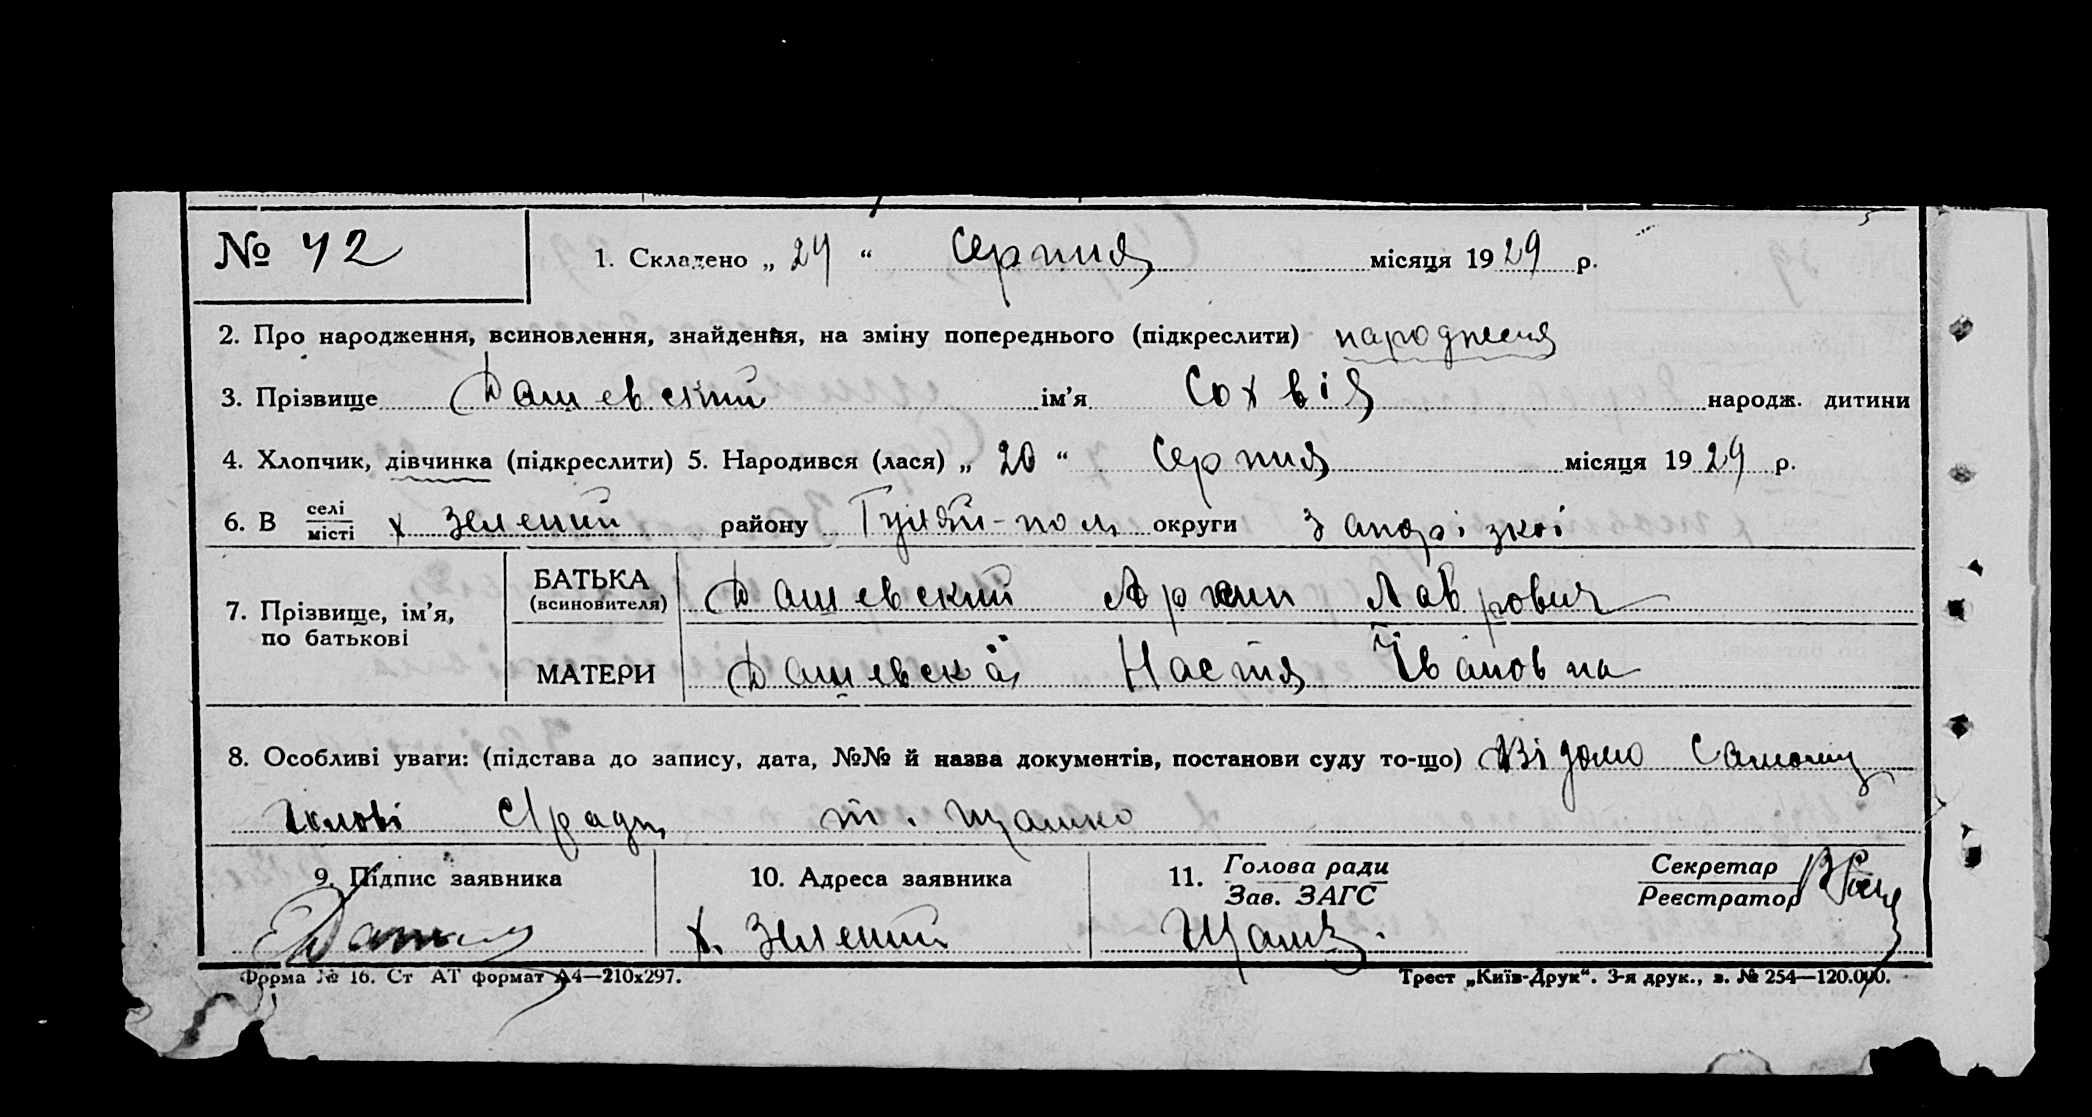 № 42 1. Складено „ 24 “ Серпня місяця 1929 р.
2. Про народження, всиновлення, знайдення, на зміну попереднього (підкреслити) народження
3. Прізвище Дашевский ім’я Сохвія народж. дитини
4. Хлопчик, дівчинка (підкреслити) 5. Народився (лася) „ 20 “ Серпня місяця 1929 р.
6. В селі х Зелений району Гуляй-поль округи Запорізкої
місті
7. Прізвище, ім’я, по батькові
БАТЬКА (всиновителя) Дашевский Лаврович
МАТЕРИ Дашевска Настя Івановна
8. Особливі уваги: (підстава до запису, дата, №№ й назва документів, постанови суду то-що) Відомо Самому
Голові С/ради т. Щашко
9. Підпис заявника 10. Адреса заявника 11. Голова ради Секретар
Зав. ЗАГС Реєстратор
х. Зелений
Форма № 16. Ст АТ формат А4—210х297. Трест „Київ-Друк“. 3-я друк., з. № 254—120.000.